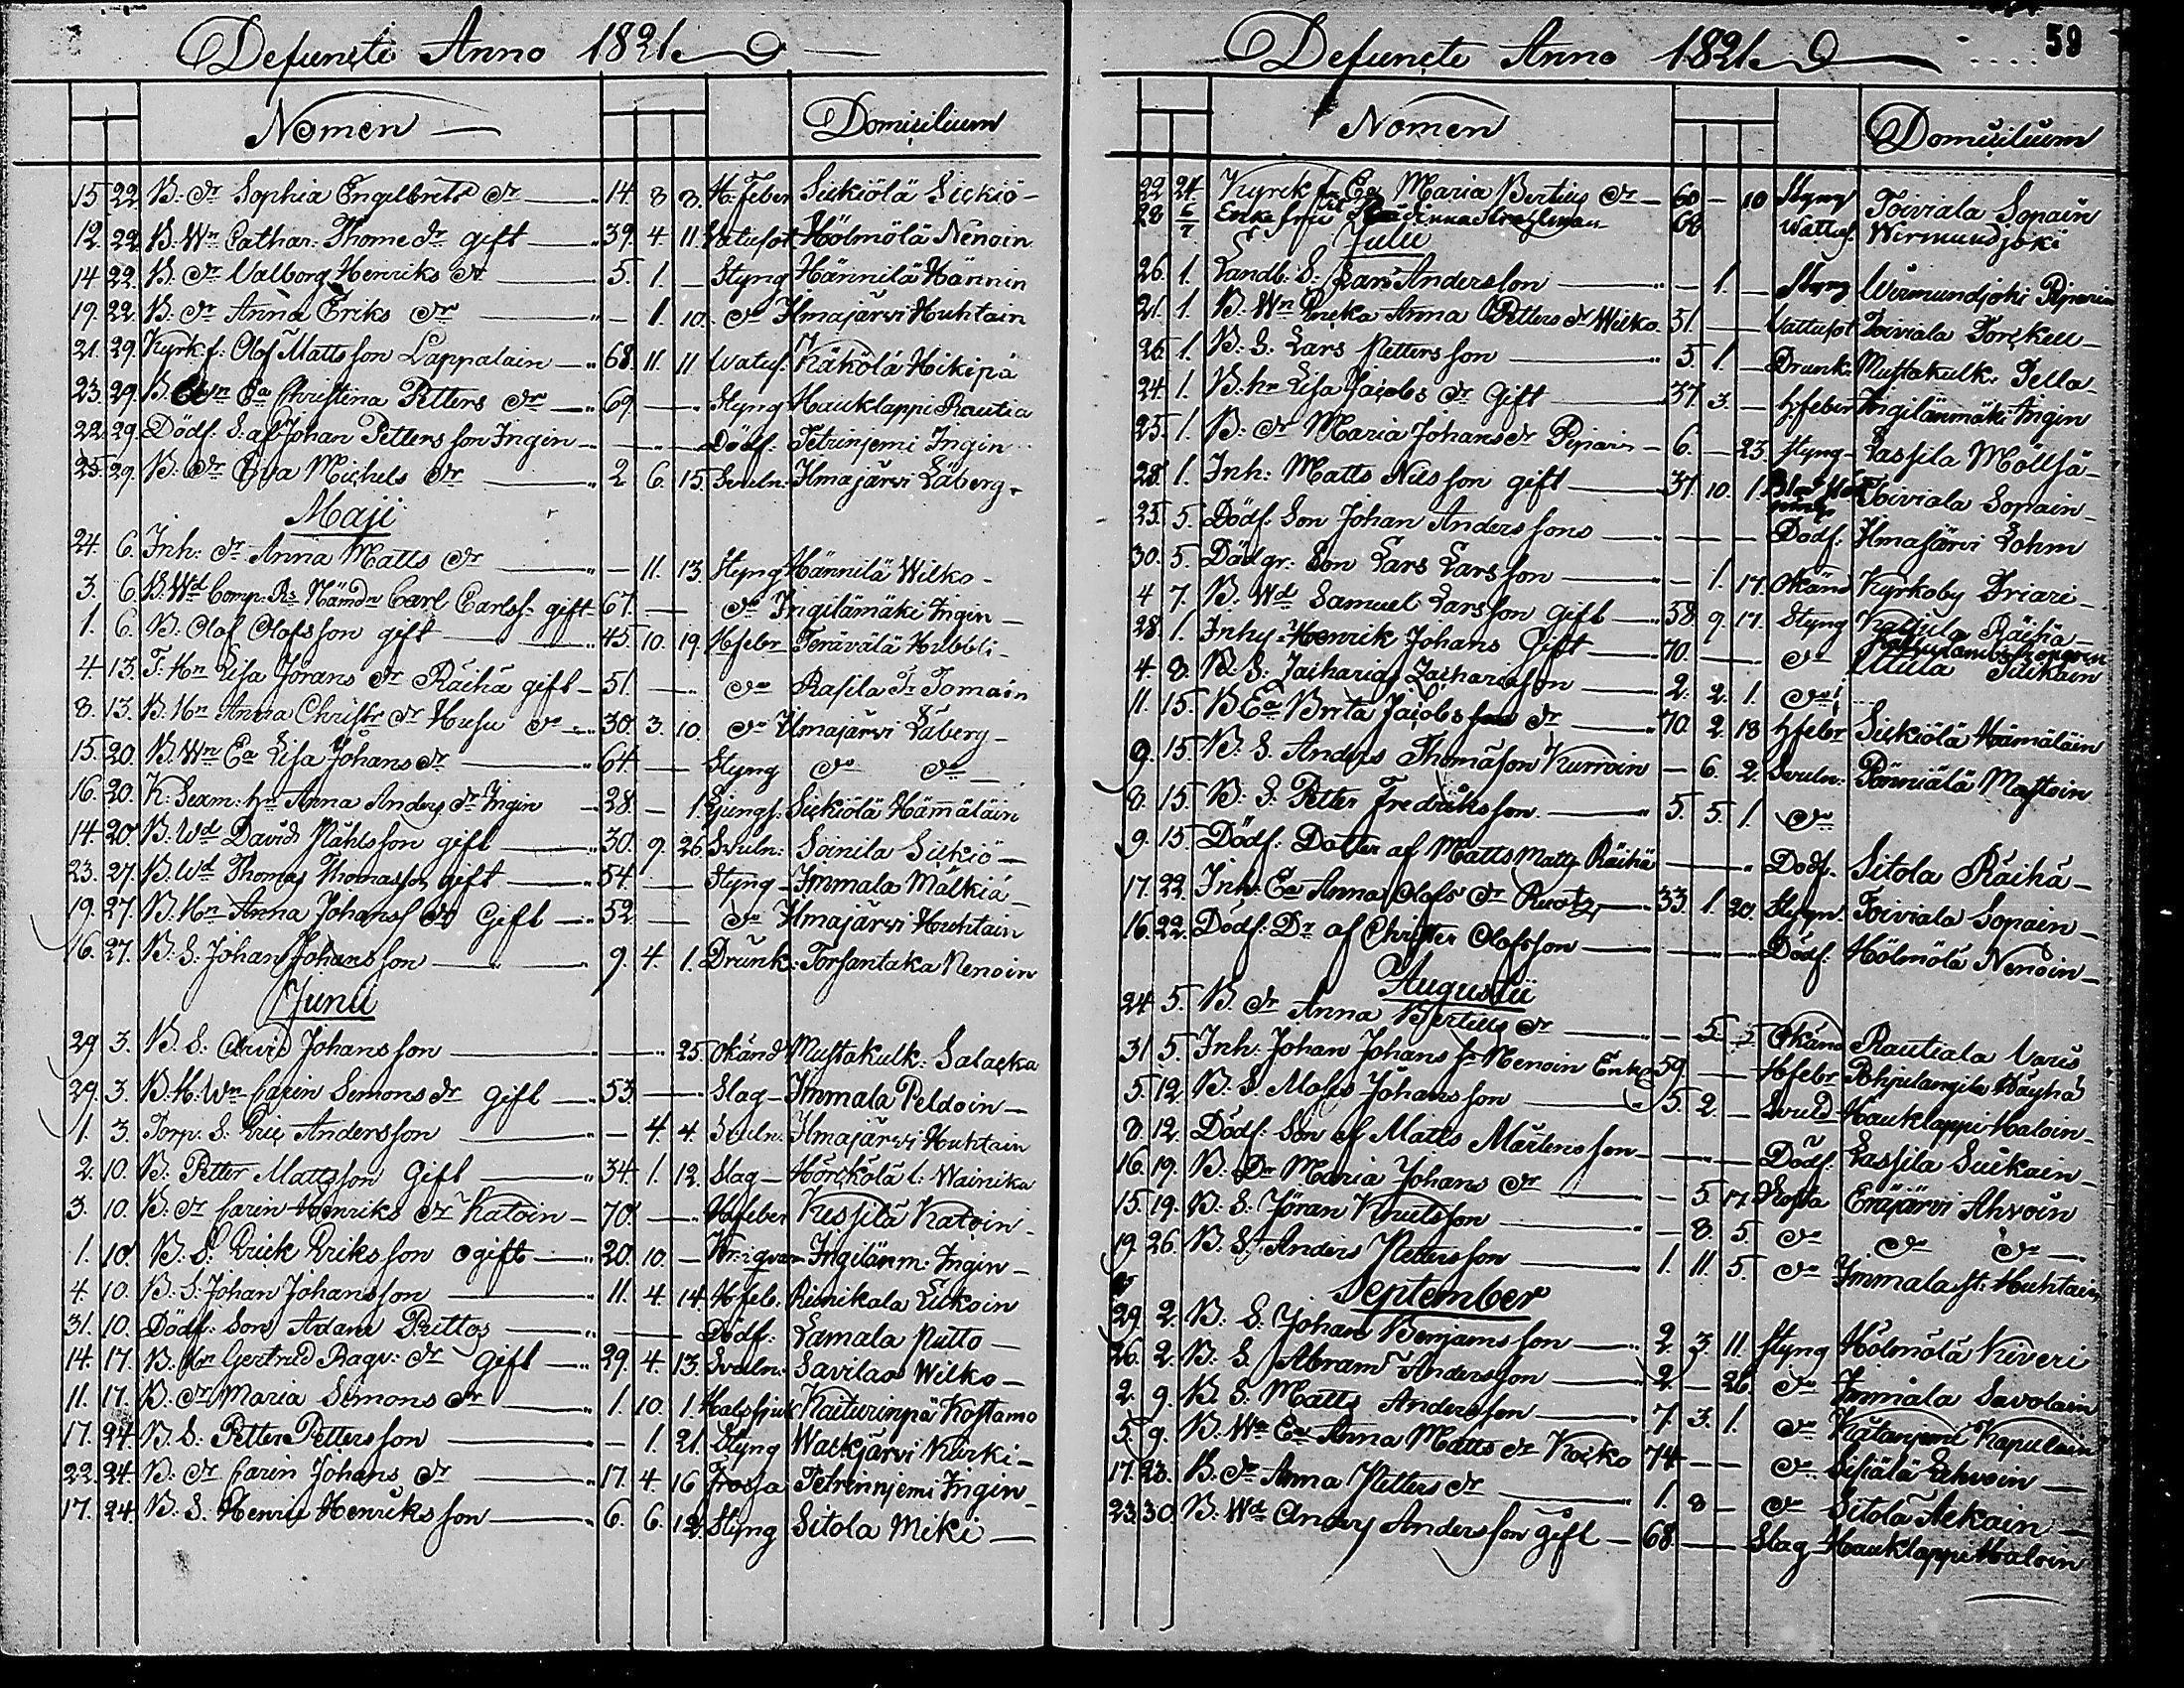 Defuncte Anno 1821.
Nomen Domisilium
15 22 B: dr Sophia Engelbrets dr 14. 8 8. H. feber Sickiölä Sickiö
12. 22. B: Wn Cathar: Thome dr gift 39. 4. 11. Vatusot Hölmölä Nenoin
14 22. B. dr Valborg Henriks dr 5. 1. Styng Hännilä Hännin
19. 22. B: dr Anna Eriks dr 1. 10. do Ilmajärwi Huhtain
21. 29. Kyrk f: Olof Mattsson Lappalain 68. 11. 11 Watus. Kähölä Hikipä
23. 29. B. Ea Christina Petters dr 69. Styng Hauklappi Rautia
22. 29. Dödf: S. af Johan Pettersson Ingin Dödf: Petrinjemi Ingin
25. 29. B: dr Eva Michels dr 2 6. 15. Svuln: Ilmajärvi Laberg
Maji
24. 6. Inh: dr Anna Matts dr 11. 13. Styng Hännilä Wilko
3. 6. B. Wd Comp: Rs Nämdn Carl Carlss: gift 67. do Ingilämäki Ingin
1. 6. B: Olof Olofsson gift 45. 10. 19. Hfebr Torävälä Hubbli
4. 13. T. Hn Lisa Jörans dr Räihä gift 51. do Rasila Tomain
8. 13. B. Hn Anna Christr dr Husu do 30. 3. 10. do Ilmajärvi Laberg
15. 20. B. Wn Ea Lisa Johans dr 64. Styng do do
16. 20. K: Sexm: hu Anna Anders dr Ingin 28. 1. Ljungs. Sickiölä Hämäläin
14. 20. B. Wd David Påhlsson gift 30. 9. 26. Svuln: Soinila Sickiö
23. 27. B. Wd Thomas Thomasson gift 54. Styng Immala Mälkiä
19. 27. B. Hn Anna Johans dr Gift 52. do Ilmajärvi Huhtain
16. 27. B. S. Johan Johansson 9. 4. 1. Drunk: Torsantaka Nenoin
Junii
29 3. B. S: Arvid Johansson 25. Okänd Mustakulk: Salacka
29. 3. B. H: Wn Carin Simons dr gift 53. Slag Immala Peldoin
1. 3. Torp. S. Eric Andersson 4. 4. Svuln: Ilmajärvi Huhtain
2. 10. B: Petter Mattsson Gift 34. 1. 12. Slag Hörckölä l: Wainika
3. 10. B: dr Carin Henriks dr Katoin 70. Hfeber Kessilä Katoin
1. 10. B. S. Erick Eriksson ogift 20. 10. Ingilänm: Ingin
4. 10. B. S: Johan Johansson 11. 4. 14. Hfeb. Rinikala Lukoin
31. 10. Dödf: Son Adam Puttos Dödf: Lamala Putto
14. 17. B: Hn Gertrud Ragv: dr Gift 29. 4. 13. Svuln: Savilax Wilko
11. 17. B: dr Maria Simons dr 1. 10. 1. Halssjuk Kaiturinpä Kostamo
17. 24. B. S: Petter Pettersson 1. 21. Styng Walkjärvi Kurki
22. 24 B: dr Carin Johans dr 17. 4. 16 Frossa Petrinnjemi Ingin
17. 24. B. S. Henric Henriksson 6. 6. 12. Styng Sitola Miki
Defuncte Anno 1821. 59
Nomen Domisilium
22. 24. Kyrck f. Ea Maria Bertils dr 60 10 Styng Toiviala Sopain
28 6/7 Enke fru 68 Wattus. Wirmundjoki
Julii
26. 1. Landb: S: Andersson 1. Styng Wirmundjoki
21. 1. B: Wn Enka Anna Petters dr Wilko 51. Vattusot Toiviala Torckell
26. 1. B: S: Lars Pettersson 5 1. Drunk: Mustakulk: Pella
24. 1. B. hn Lisa Jacobs dr Gift 37. 3. hfeber Ingilänmäki Ingin
25. 1. B: dr Maria Johans dr Piparin 6. 23. Styng Lassila Mollsä
28. 1. Inh: Matts Nilsson gift 37. 10. 1 Toiviala Sopain
25. 5. Dödf: Son Johan Anderssons Dödf: Ilmajärvi Lohm
30. 5. Dödgr: Son Lars Larsson 1. 17. Okänd Kyrkoby Friari
4 7. B: Wd Samuel Larsson gift 58. 9. 17. Styng Kaijula Räihä
28. 1. Inhy: Henrik Johans Gift 70. do
4. 8. B. S: Zacharias Zachariasson 2. 2. 1. do Uttula Suikain
11. 15. B Ea Brita Jacobs dr 70. 2. 18 hfebr Sickiölä Hämäläin
9. 15. B: S. Anders Thomasson Kurvoin 6. 2. Svuln: Pänniälä Mastoin
8. 15. B: S. Petter Fredriksson 5. 5. 1. do
9. 15. Dödf: Dotter af Matts Matts Räihä Dödf. Sitola Räihä
17. 22. Inh: Ea Anna Olofs dr Ruotz 33 1. 20. Styng Toiviala Sopain
16. 22. Dödf: Dr af Christer Olofsson Dödf. Hölmölä Nenoin
Augustii
24. 5. B. dr Anna Bertils dr 5. 5. Okänd Rautiala Varis
31. 5. Inh: Johan Johans sr Nenoin Enk 59. Hfebr Pohjulangila Wäyhä
5. 12. B: S. Moses Johansson 5. 2. Svuld Hauklappi Haloin
8. 12. Dödf: Son af Matts Mårtensson Dödf: Lassila Suikain
16. 19. B. Dr Maria Johans dr 5. 17. Hosta Eräjärvi Ahvoin
15. 19. B. S. Jöran Knutsson 8. 5. do do do
19. 26. B: S. Anders Pettersson 1. 11. 5. do Immala st. Huhtain
September
29. 2. B: S: Johan Benjamsson 2. 3. 11. Styng Hölmölä Kiveri
26. 2. B: S. Abram Andersson 2. 26. do Immala Savolain
2. 9. B: S: Matts Andersson 7. 3. 1. do Kätanjemi Kapulain
5. 9. B. Wn Ea Anna Matts dr Kocko 74 do Lisiälä Lehvoin
17. 23. B. dr Anna Petters dr 1. 8 do Sitola Aekain
23. 30. B: Wd Anders Andersson gift 68. Slag Hauklappi Haloin